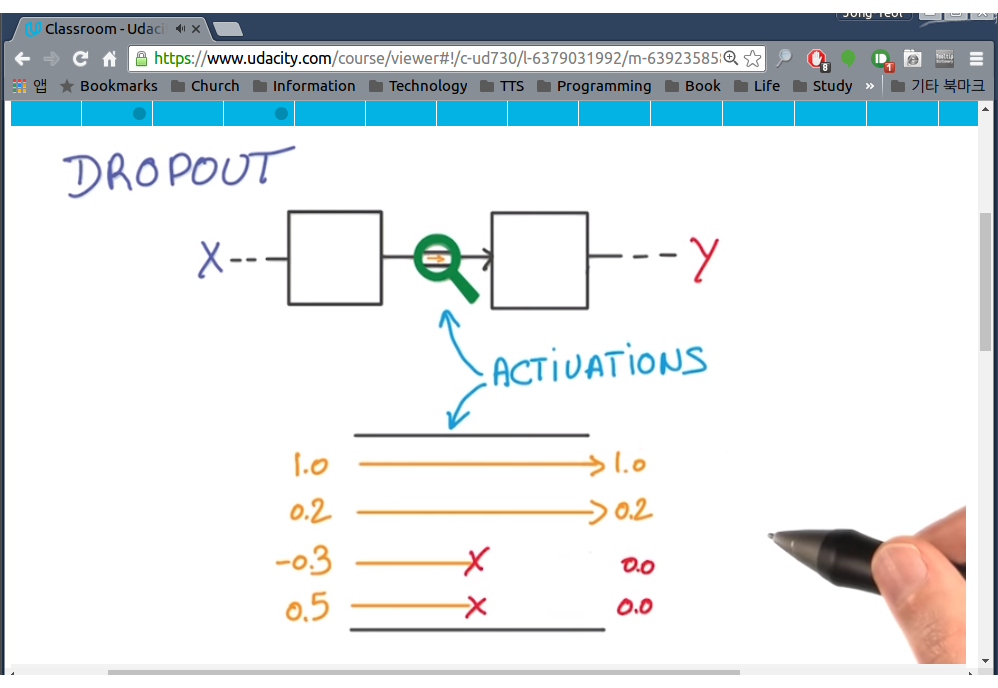 Jong Yeol
Classroom - Udaci
https://www.udacity.com/course/viewer#!/c-ud730/l-6379031992/m-63923585
앱 Bookmarks Church Information Technology TTS Programming Book Life Study » 기타 북마크
8
1
DROPOUT
X Y
ACTIVATIONS
1.0 1.0
0.2 0.2
-0.3 X 0.0
0.5 X 0.0